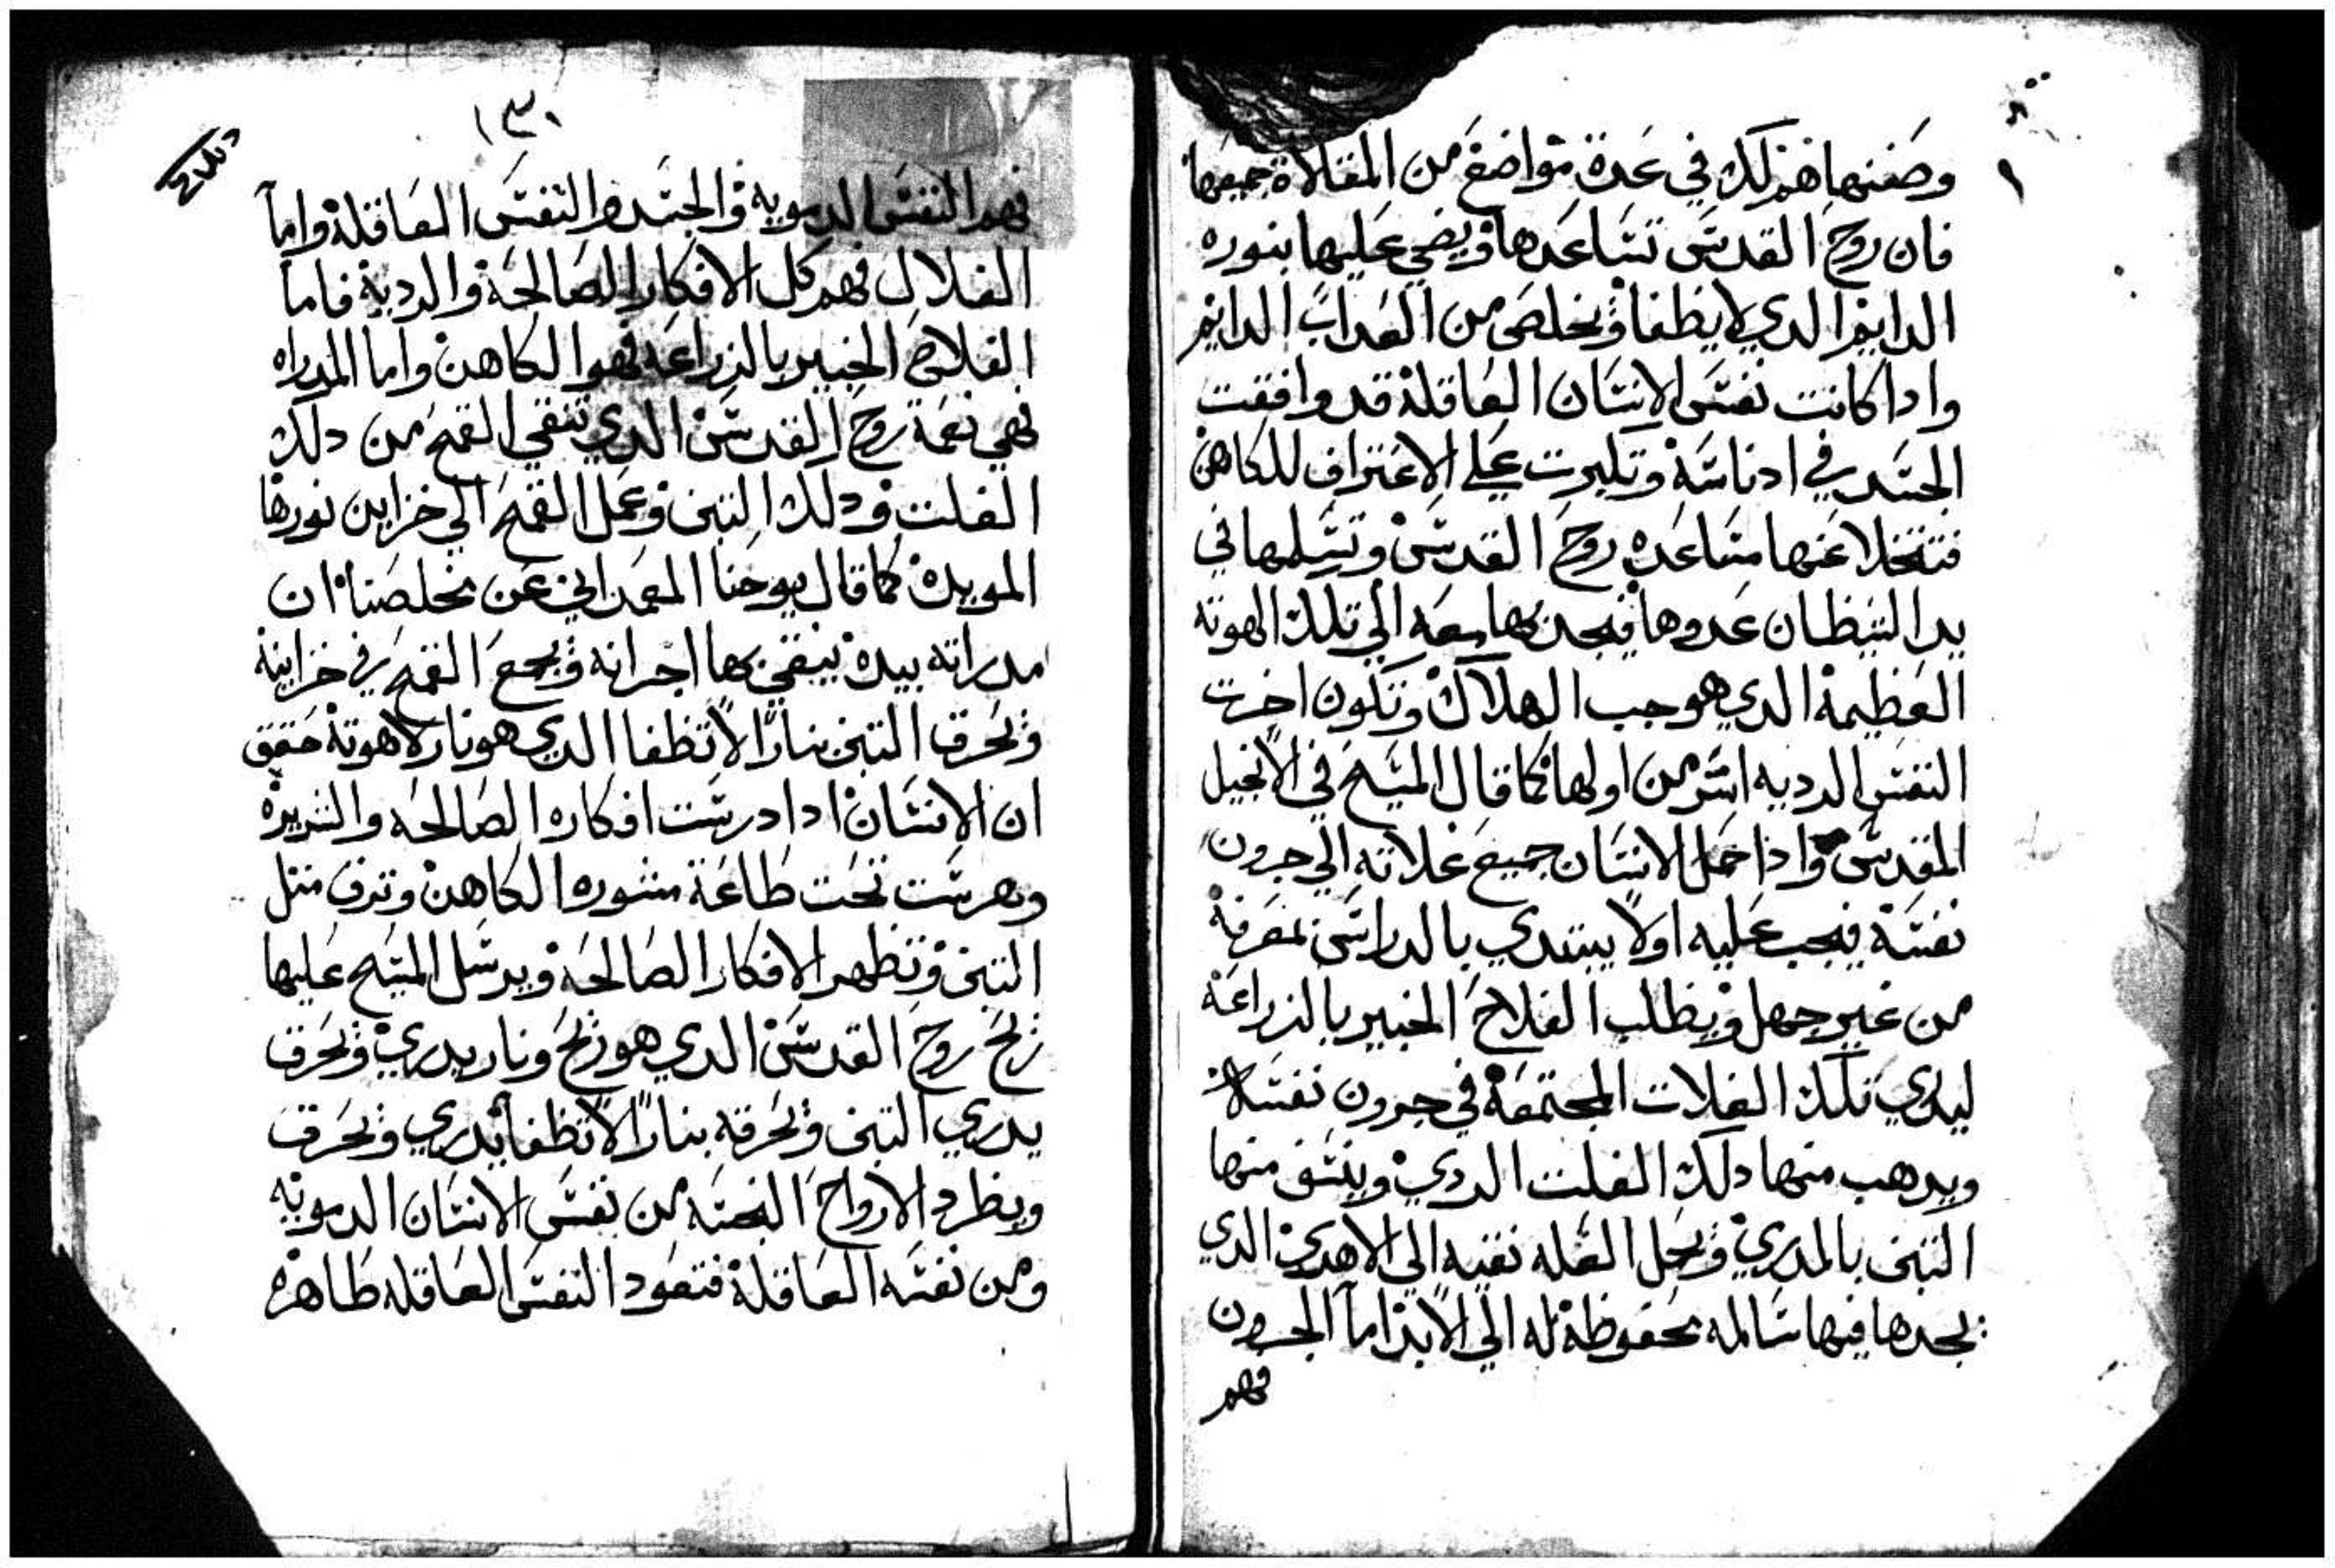 وضفنهاهم لك في عدة مواضع من المقالاة جميعها
فان روح القدس تساعدها ويضي عليها بنوره
الدايم الدي لا يطفا وتخلص من العداب الدايم
وادا كانت نفس الانسان العاقلة قد وافقت
الجسد في ادناسة وتكبرت علي الاعتراف للكاهن
فتتخلا عنها مساعده روح القدس وتسلمها في
يد الشيطان عدوها فيجدبها معه الي تلك الهوته
العظيمة الدي هو جب الهلاك وتكون اخرت
النفس الرديه اشر من اولها كما قال المسيح في الانجيل
المقدس واذا حمل الانسان جميع غلاته الي جرون
نفسة فيجب عليه اولا يبتدي بالدراس بمعرفة
من غير جهل ويطلب الفلاح الخبير بالزراعة
ليدري تلك الغلات المجتمعة في جرون نفسه
ويدهب منها دلك الغلت الردي وينسف منها
التبن بالمدري ويحل الغله نقيه الي الاهري الدي
يجدها فيها سالمه محفوظة له الي الابد اما الجرون
فهم
١٣٠
فهم النفس الدمويه والجسد والنفس العاقلة واما
الغلال فهم كل الافكار الصالحة والردية فاما
الفلاح الخبير بالزراعه فهوا الكاهن واما المدراه
فهي نعمة روح القدس الدي تنقي القمح من دلك
الغلت ودلك التبن وعمل القمح الي خزاين نورها
الموبدة كما قال يوحنا المعمداني عن مخلصنا ان
مدراته بيدة يبنقي بها اجرانه ويجمع القمح في خزاينة
ويحرق التبن بنارا لا تطفا الدي هو نار لاهوتة حقق
ان الانسان ادا درست افكاره الصالحه والشريرة
وهرست تحت طاعة مشوره الكاهن وترق مثل
التبن وتظهر الافكار الصالحه ويرسل المسيح عليها
ريح روح القدس الدي هو ريح ونار يدري ويحرق
يدري التبن ويحرقه بنارا لا تطفا يدري ويحرق
ويطرد الارواح النجسه من نفس الانسان الدمويه
ومن نفسه العاقلة فتعود النفس العاقله طاهره